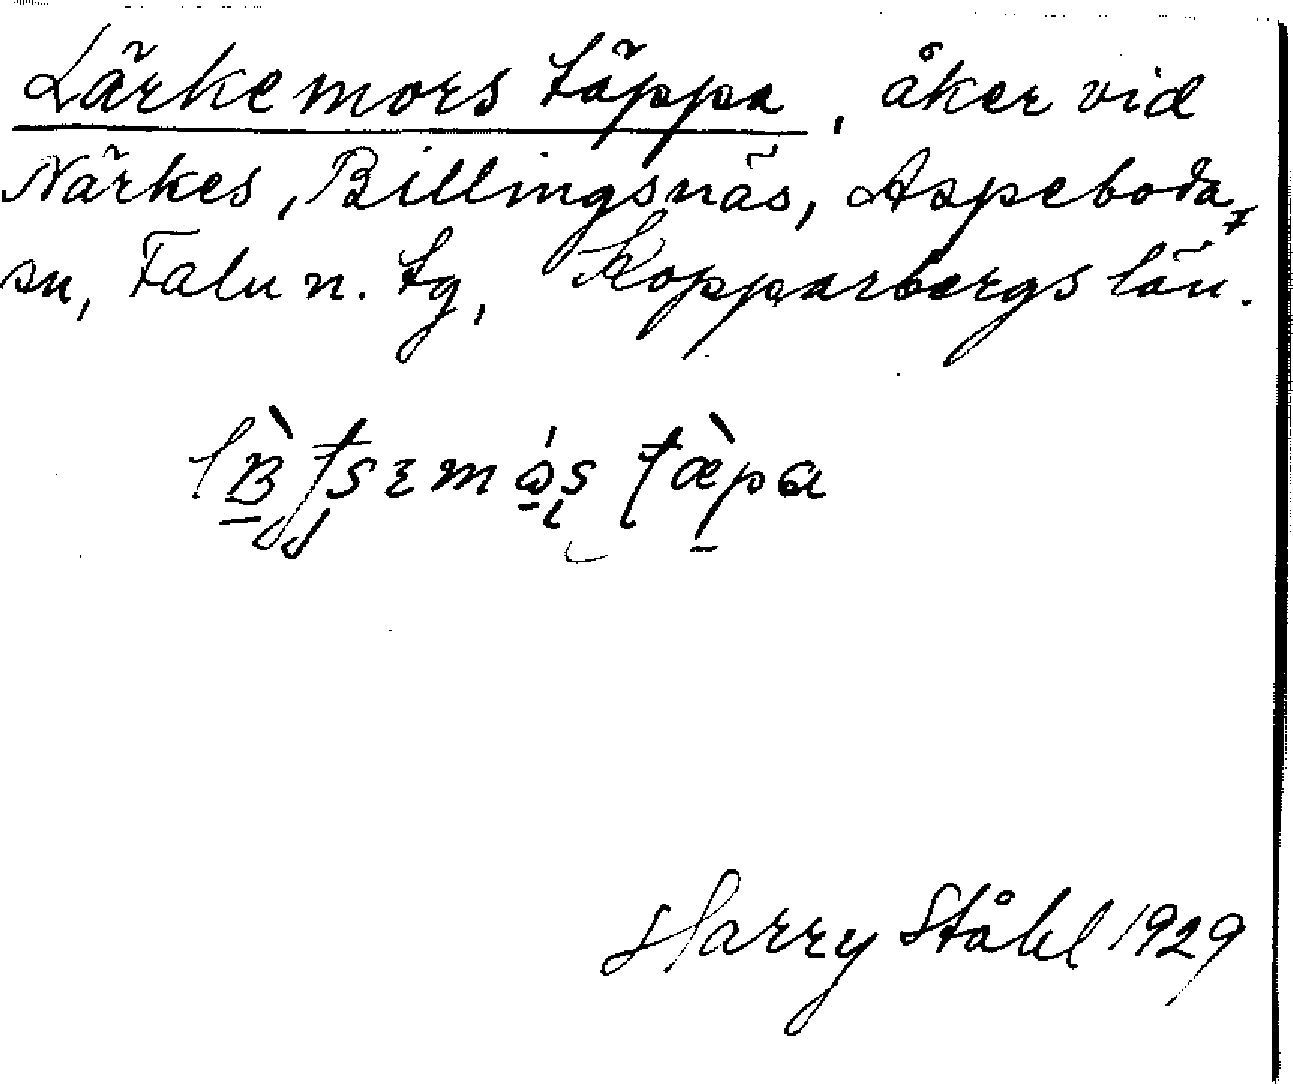 Lärkemors täppa, åker vid
Närkes, Billingsnäs, Aspeboda
sn, Falu n. tg, Kopparbergs län.
Harry Ståhl 1929